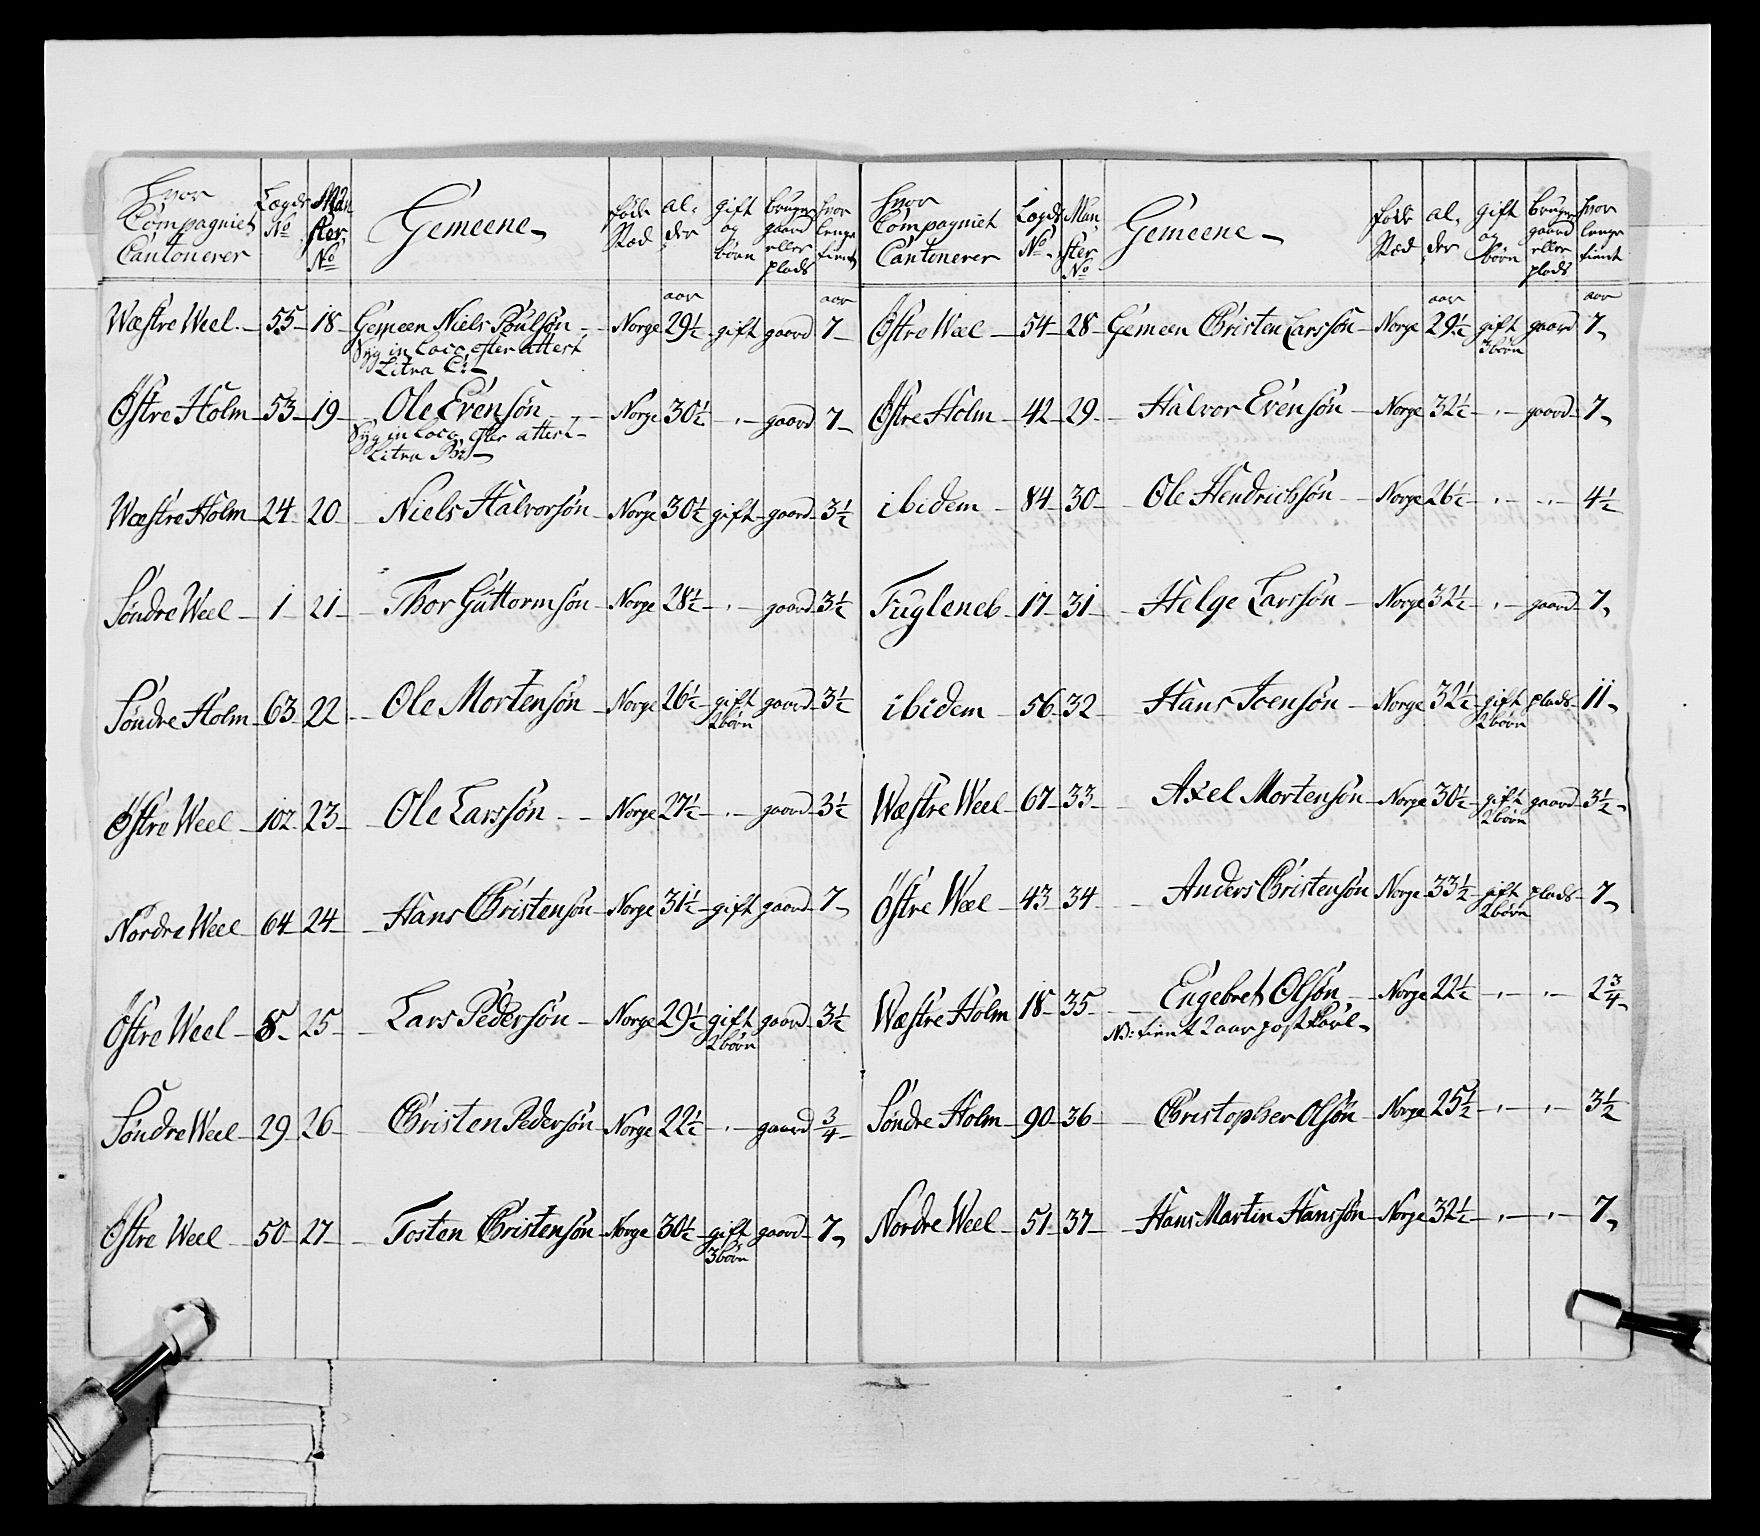 hvor Compagniet Cantonerer | Lægds No | Mönster No | Gemeene | föde Stæd | alder | gift og börn | bruger gaard eller plads | hvor lenge tient
Wæstre Weel | 55 | 18 | Gemeen Niels Poulsön | Norge | aar 29½ | gift | gaard | aar 7
Syg in loco efter attest
Litra C:
Östre Holm | 53 | 19 | Ole Evensön | Norge | 30½ | " | gaard | 7
Syg in loco efter attest
Litra
Wæstre Holm | 24 | 20 | Niels Halvorsön | Norge | 30½ | gift | gaard | 3½
Söndre Weel | 1 | 21 | Thor Guttormsön | Norge | 28½ | " | gaard | 3½
Söndre Holm | 63 | 22 | Ole Mortensön | Norge | 26½ | gift 2 börn | gaard | 3½
Östre Weel | 102 | 23 | Ole Larssön | Norge | 27½ | " | gaard | 3½
Nordre Weel | 64 | 24 | Hans Christensön | Norge | 31½ | gift | gaard | 7
Östre Weel | 8 | 25 | Lars Pedersön | Norge | 29½ | gift 2 börn | gaard | 3½
Söndre Weel | 29 | 26 | Christen Pedersön | Norge | 22½ | " | gaard | ¾
Östre Weel | 50 | 27 | Tosten Christensön | Norge | 30½ | gift 3 börn | gaard | 7
hvor Compagniet Cantonerer | Lægds No | Mönster No | Gemeene | föde Stæd | alder | gift og börn | bruger gaard eller plads | hvor lenge tient
Östre Weel | 54 | 28 | Gemeen Christen Larssön | Norge | aar 29½ | gift 3 börn | gaard | aar 7
Östre Holm | 42 | 29 | Halvor Evensön | Norge | 32½ | " | gaard | 7
ibidem | 84 | 30 | Ole Hendrichsön | Norge | 26½ | " | " | 4½
Fugleneb | 17 | 31 | Helge Larssön | Norge | 32½ | " | gaard | 7
ibidem | 56 | 32 | Hans Joensön | Norge | 32½ | gift 2 börn | plads | 11
Wæstre Weel | 67 | 33 | Axel Mortensön | Norge | 30½ | gift 2 börn | gaard | 3½
Östre Weel | 43 | 34 | Anders Christensön | Norge | 33½ | gift 2 börn | plads | 7
Wæstre Holm | 18 | 35 | Engebret Olsön | Norge | 22½ | " | " | 2¾
NB: tient 2 aar
Söndre Holm | 90 | 36 | Christopher Olsön | Norge | 25½ | " | " | 3½
Nordre Weel | 51 | 37 | Hans Martin Hanssön | Norge | 32½ | " | " | 7